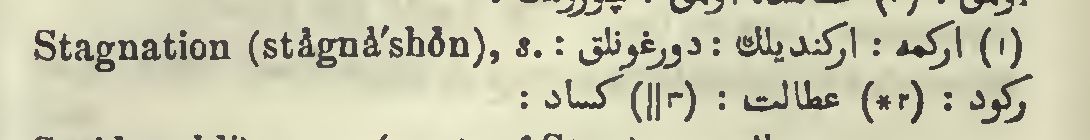 Stagnation (stȧgnȧ′shȯn), s. : (۱) اركمه : اركنديلك : دورغونلق :
ركود : (۲*) عطالت : (۳||) كساد :